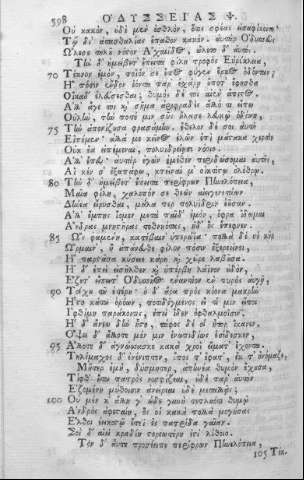 598 ὈΔΥΣΣΕΙΑΣ Ψ.
Οὐ κακὸν, οὐδὲ μὲν ἐσθλὸν, ὅτις σφέας εἰσαφίκοιτο·
Τῷ δι' ἀτασθαλίας ἔπαθον κακόν· αὐτὰρ Ὀδυσσεὺς
Ὤλεσε τηλοῦ νόστον Ἀχαιΐδος, ὤλετο δ' αὐτός.
Τὴν δ' ἠμείβετ' ἔπειτα φίλη τροφὸς Εὐρύκλεια,
70 Τέκνον ἐμὸν, ποῖόν σε ἔπος φύγεν ἕρκος ὀδόντων;
Ἣ πόσιν ἔνδον ἐόντα παρ' ἐσχάρῃ οὔποτ' ἔφησθα
Οἴκαδ' ἐλεύσεσθαι, θυμὸς δέ τοι αἰὲν ἄπιστος.
Ἀλλ' ἄγε τοι καὶ σῆμα ἀριφραδὲς ἄλλο τι εἴπω
Οὐλὴν, τήν ποτέ μιν σῦς ἤλασε λευκῷ ὀδόντι,
75 Τὴν ἀπονίζουσα φρασάμην, ἔθελον δὲ σοὶ αὐτῇ
Εἰπέμεν· ἀλλά με κεῖνος ἑλὼν ἐπὶ μάστακα χερσὶν
Οὐκ ἔα εἰπέμεναι, πολυϊδρείῃσι νόοιο.
Ἀλλ' ἕπευ· αὐτὰρ ἐγὼν ἐμέθεν περιδώσομαι αὐτῆς,
Αἴ κέν σ' ἐξαπάφω, κτεῖναί μ' οἰκτίστῳ ὀλέθρῳ.
80 Τὴν δ' ἠμείβετ' ἔπειτα περίφρων Πηνελόπεια,
Μαῖα φίλη, χαλεπόν σε θεῶν αἰειγενετάων
Δήνεα εἴρυσθαι, μάλα περ πολύϊδριν ἐοῦσαν.
Ἀλλ' ἔμπης ἴομεν μετὰ παῖδ' ἐμὸν, ὄφρα ἴδωμαι
Ἄνδρας μνηστῆρας τεθνηότας, ἠδ' ὃς ἔπεφνεν.
85 Ὣς φαμένη, κατέβαιν' ὑπερώϊα· πολλὰ δέ οἱ κῆρ
Ὥρμαιν', ἢ ἀπάνευθε φίλον πόσιν ἐξερεείνοι,
Ἢ παρστᾶσα κύσειε κάρη καὶ χεῖρε λαβοῦσα.
Ἡ δ' ἐπεὶ εἰσῆλθεν καὶ ὑπέρβη λάϊνον οὐδὸν,
Ἕζετ' ἔπειτ' Ὀδυσῆος ἐναντίον ἐν πυρὸς αὐγῇ,
90 Τοίχου τοῦ ἑτέρου· ὁ δ' ἄρα πρὸς κίονα μακρὴν
Ἧστο κάτω ὁρόων, ποτιδέγμενος εἴ τί μιν εἴποι
Ἰφθίμη παράκοιτις, ἐπεὶ ἴδεν ὀφθαλμοῖσιν.
Ἡ δ' ἄνεω δὴν ἧστο, τάφος δέ οἱ ἦτορ ἵκανεν.
Ὄψει δ' ἄλλοτε μέν μιν ἐνωπιδίως ἐσίδεσκεν,
95 Ἄλλοτε δ' ἀγνώσασκε κακὰ χροῒ εἵματ' ἔχοντα.
Τηλέμαχος δ' ἐνένιπτεν, ἔπος τ' ἔφατ', ἔκ τ' ὀνόμαζε,
Μῆτερ ἐμὴ, δύσμητερ, ἀπηνέα θυμὸν ἔχουσα,
Τίφθ' οὕτω πατρὸς νοσφίζεαι, οὐδὲ παρ' αὐτὸν
Ἑζομένη μύθοισιν ἀνείρεαι οὐδὲ μεταλλᾷς;
100 Οὐ μέν κ' ἄλλη γ' ὧδε γυνὴ τετληότι θυμῷ
Ἀνδρὸς ἀφεσταίη, ὅς οἱ κακὰ πολλὰ μογήσας
Ἔλθοι ἐεικοστῷ ἔτεϊ ἐς πατρίδα γαῖαν.
Σοὶ δ' αἰεὶ κραδίη στερεωτέρη ἐστὶ λίθοιο.
Τὸν δ' αὖτε προσέειπε περίφρων Πηνελόπεια,
105 Τέκ.